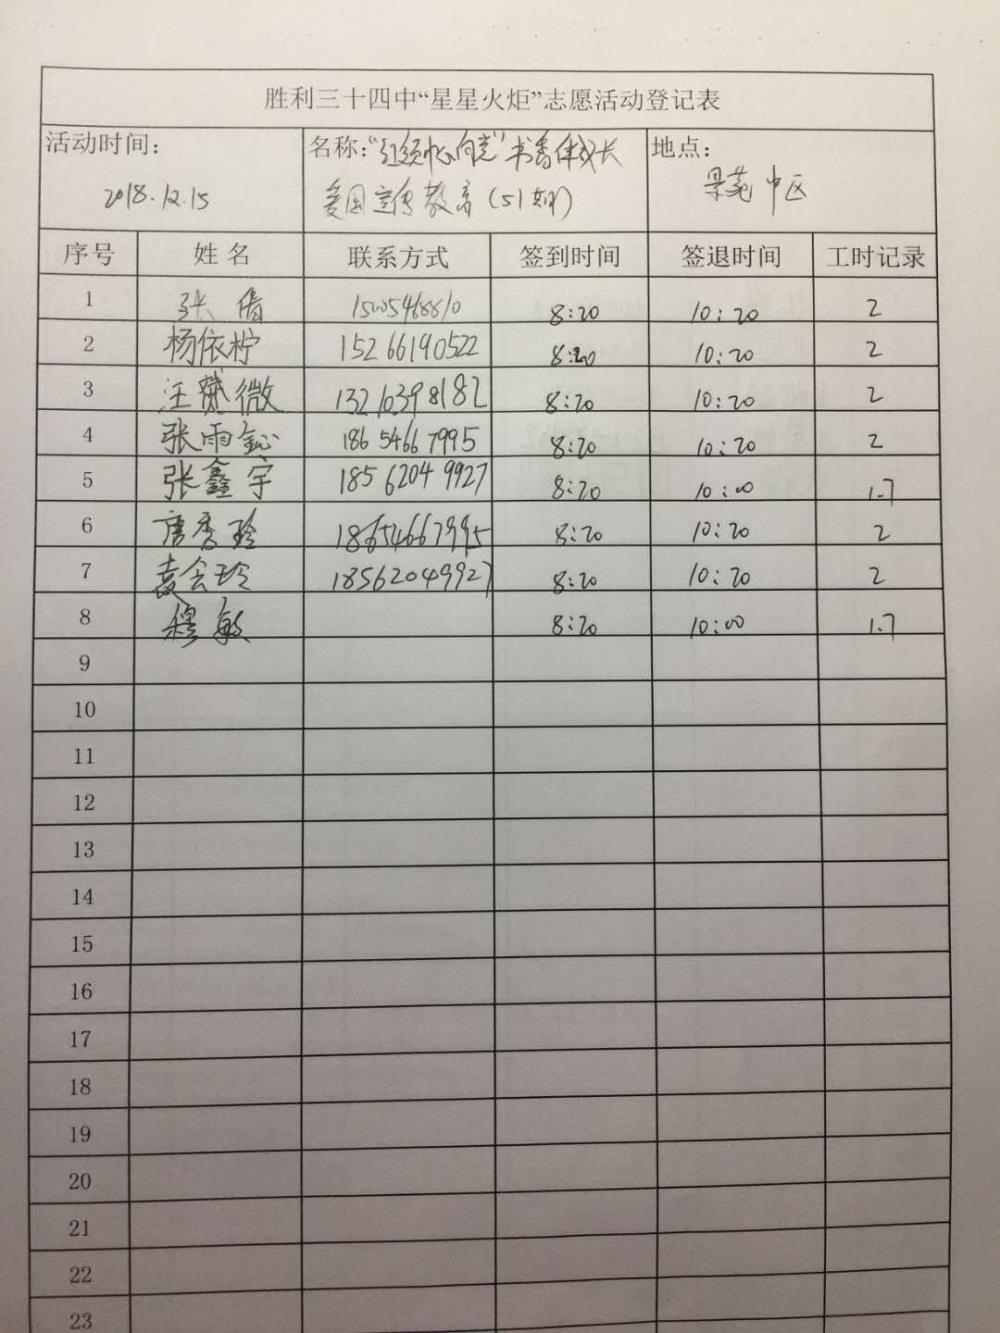 胜利三十四中“星星火炬”志愿活动登记表
活动时间： 名称：“红领巾心向党”书香伴成长 地点：
2018.12.15 爱国宣传教育（51期） 景苑中区
序号 姓名 联系方式 签到时间 签退时间 工时记录
1 张倩 15005468810 8:20 10:20 2
2 杨依柠 15266190522 8:20 10:20 2
3 汪薇 13210398182 8:20 10:20 2
4 张雨 18654667995 8:20 10:20 2
5 张鑫宇 18562049927 8:20 10:00 1.7
6 唐秀玲 18654667995 8:20 10:20 2
7 袁会玲 18562049927 8:20 10:20 2
8 穆敏 8:20 10:00 1.7
9
10
11
12
13
14
15
16
17
18
19
20
21
22
23